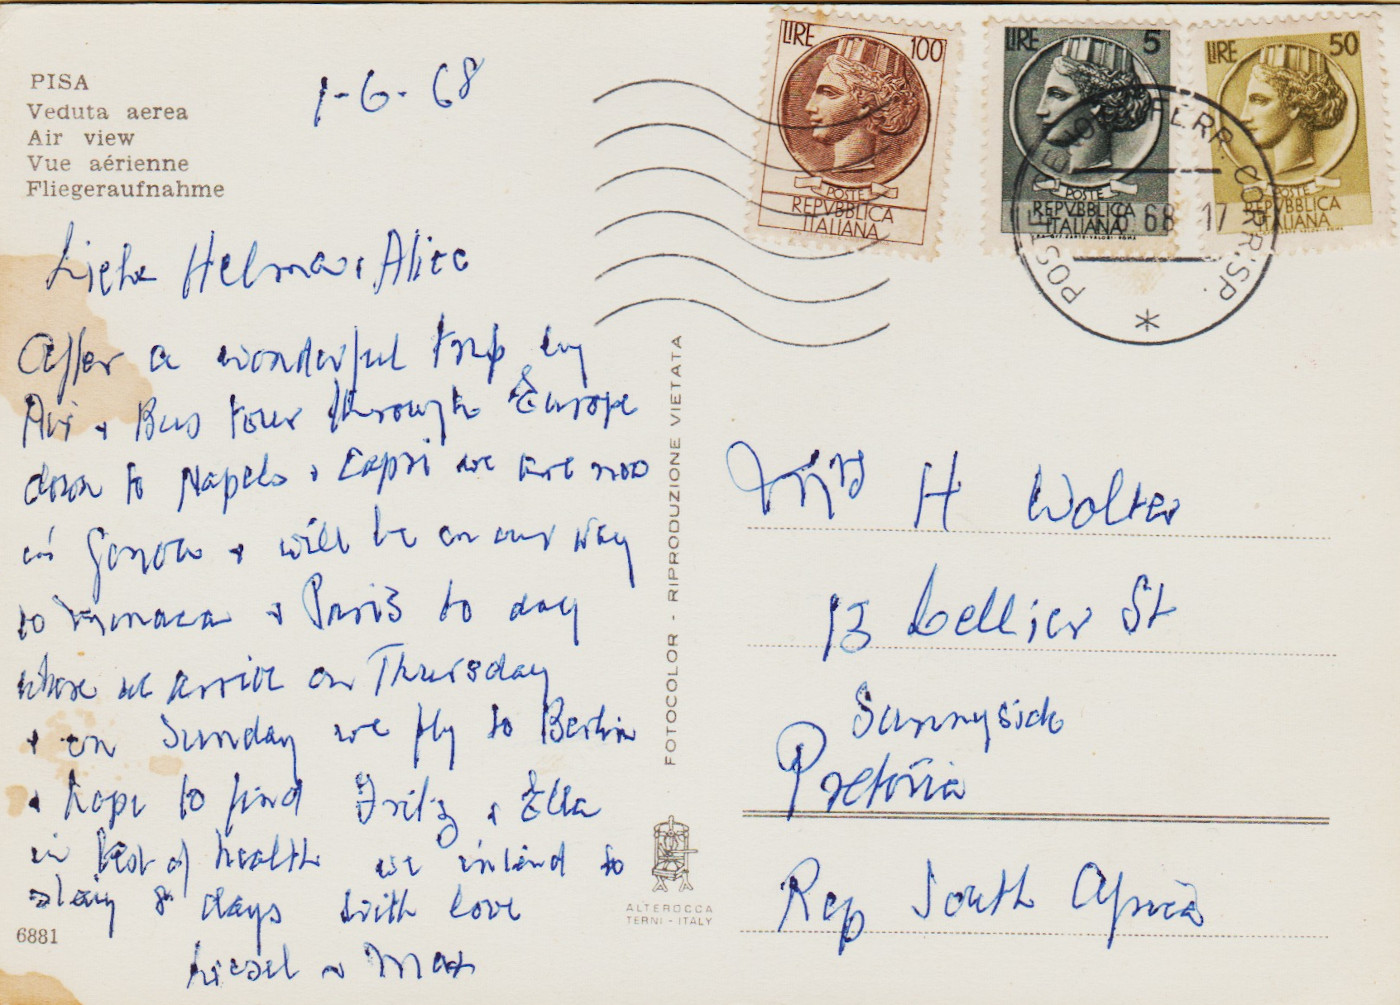 PISA
Veduta aerea
Air view
Vue aérienne
Fliegeraufnahme
1-6-68
Liebe Helma + Alice
After a wonderful trip by
Air + Bus tour through Europe
down to Napels + Capri we are now
in Genova + will be on our way
to Monaca + Paris to day
where we arrive on Thursday
+ on Sunday we fly to Berlin
+ hope to find Fritz + Ella
in best of health we intend to
stay 8 days with love
Liesel + Max
6881
FOTOCOLOR - RIPRODUZIONE VIETATA
ALTEROCCA
TERNI - ITALY
LIRE 100
POSTE
REPVBBLICA
ITALIANA
LIRE 5
POSTE
REPVBBLICA
ITALIANA
LIRE 50
POSTE
REPVBBLICA
ITALIANA
POSTE FERR. CORRISP.
68 17
Mrs H Wolter
13 Cellier St
Sunnyside
Pretoria
Rep South Africa